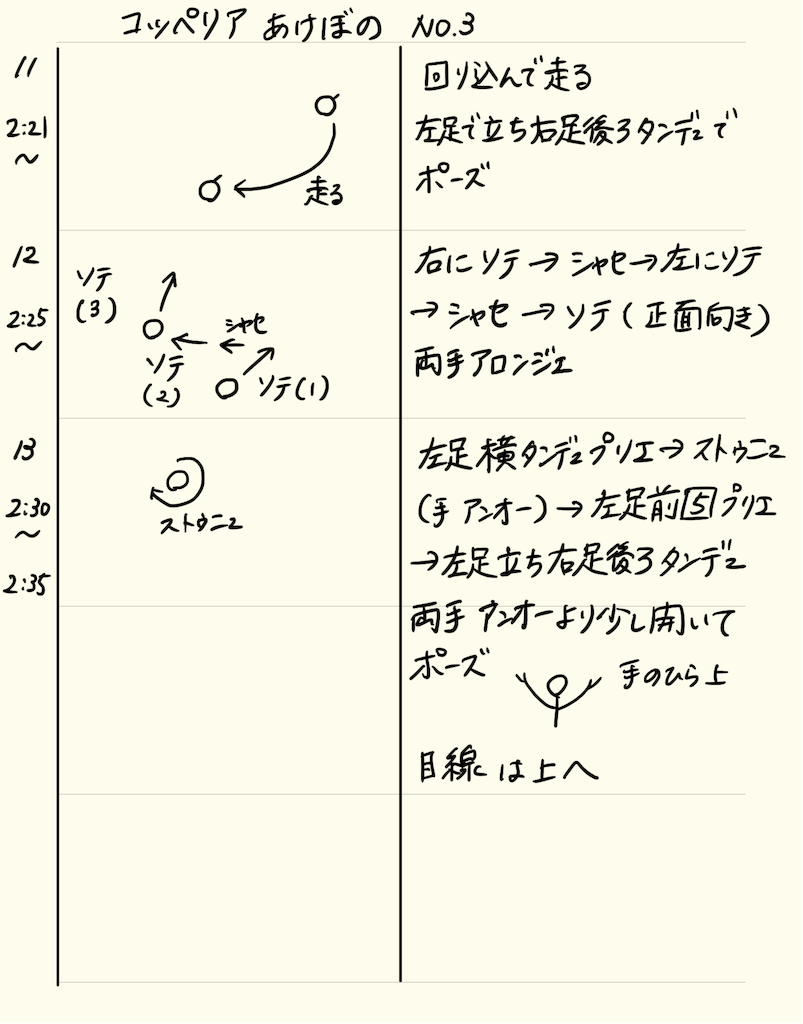 コッペリア あけぼの NO.3
11
2:21
~
走る
回り込んで走る
左足で立ち右足後ろタンデュで
ポーズ
12
2:25
~
ソテ
(3)
シャセ
ソテ
(2)
ソテ(1)
右にソテ→シャセ→左にソテ
→シャセ→ソテ(正面向き)
両手アロンジェ
13
2:30
~
2:35
ストゥニュ
左足横タンデュプリエ→ストゥニュ
(手アンオー)→左足前5プリエ
→左足立ち右足後ろタンデュ
両手アンオーより少し開いて
ポーズ
手のひら上
目線は上へ